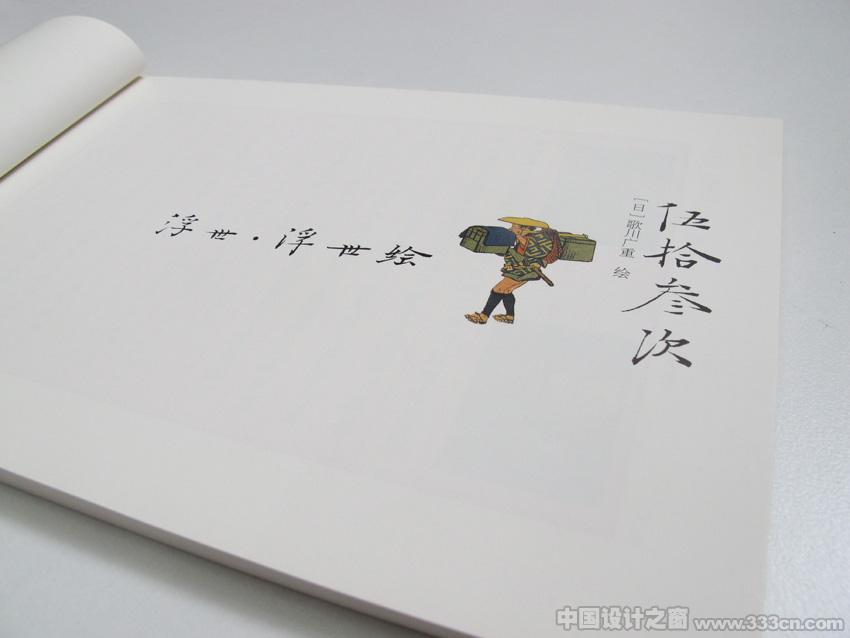 伍拾叁次
[日]歌川广重 绘
浮世·浮世绘
中国设计之窗 www.333cn.com